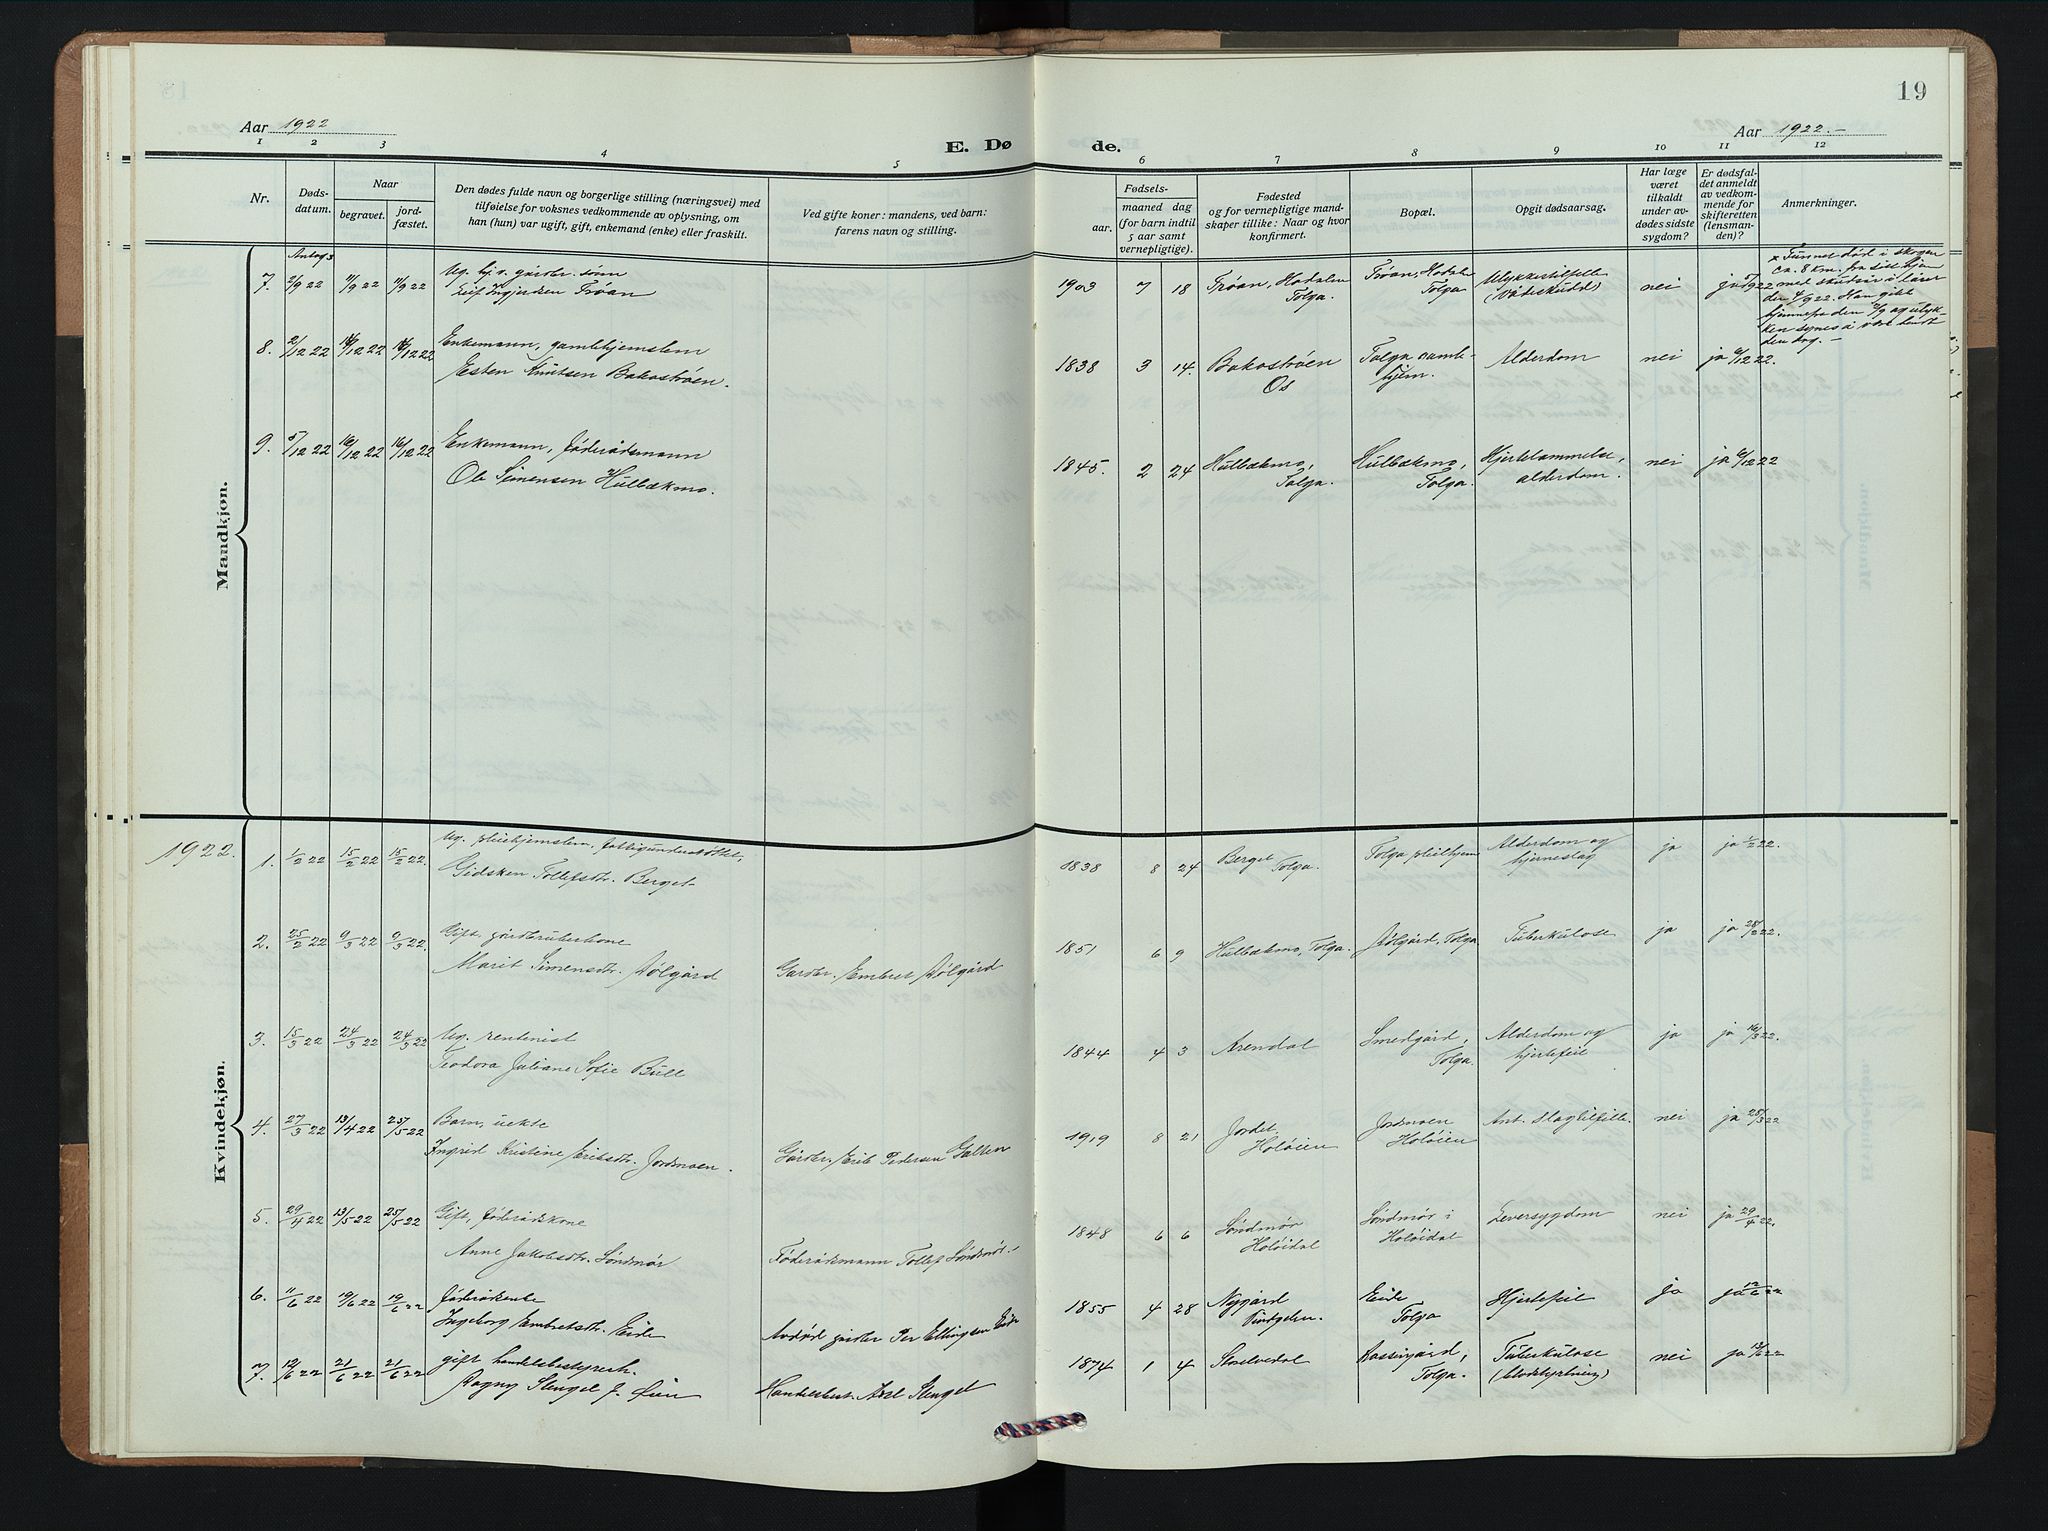 19
Aar 1922
E. Dø de.
Aar 1922.-
1 2 3 4 5 6 7 8 9 10 11 12
Nr.
Døds-
datum.
Naar
begravet.
jord-
fæstet.
Den dødes fulde navn og borgerlige stilling (næringsvei) med
tilføielse for voksnes vedkommende av oplysning, om
han (hun) var ugift, gift, enkemand (enke) eller fraskilt.
Ved gifte koner: mandens, ved barn:
farens navn og stilling.
Fødsels-
aar.
maaned dag
(for barn indtil
5 aar samt
vernepligtige).
Fødested
og for vernepligtige mand-
skaper tillike: Naar og hvor
konfirmert.
Bopæl.
Opgit dødsaarsag.
Har læge
været
tilkaldt
under av-
dødes sidste
sygdom?
Er dødsfal-
det anmeldt
av vedkom-
mende for
skifteretten
(lensman-
den)?
Anmerkninger.
Mandkjøn.
Antag.
7. 2/9 22 11/9 22 11/9 22 Ug. hj.v. gårdbr. sønn
Leif Ingjerdsen Trøan
1903 7 18 Trøan, Hodalen Tolga. Trøan, Hodalen Tolga Ulykkestilfelle (Vådeskudd) nei ja 5/9 22
x Funnet død i skogen
ca. 8 km. fra sitt hjem
med skudsår i låret
den 4/9 22. Han gikk
hjemmefra den 2/9 og ulyk-
ken synes å være hendt
den dag. -
8. 2/12 22 16/12 22 16/12 22 Enkemann, gamlehjemslem
Esten Knutsen Bakostrøen.
1838 3 14. Bakostrøen Os Tolga gamle-
hjem. Alderdom nei ja 4/12 22.
9. 5/12 22 16/12 22 16/12 22 Enkemann, föderådsmann
Ole Simensen Hulbækmo.
1845. 2 24 Hulbækmo, Tolga. Hulbækmo, Tolga. Hjertelammelse, alderdom. nei ja 6/12 22
Kvindekjøn.
1922.
1. 1/2 22 15/2 22 15/2 22. Ug. pleiehjemslem, fattigunderstøttet,
Gidsken Tollefsdtr. Berget
1838 8 24 Berget Tolga. Tolga pleiehjem Alderdom og
hjerneslag ja ja 1/2 22.
2. 25/2 22 9/3 22 9/3 22. Gift, gårdbrukerkone
Marit Simensdtr. Dølgård Gårdbr. Embret Dølgård
1851 6 9 Hulbækmo, Tolga. Dølgård, Tolga Tuberkulose ja ja 28/2 22.
3. 15/3 22 24/3 22 24/3 22 Ug. rentenist
Teodora Juliane Sofie Bull
1844 4 3 Arendal Smedgård, Tolga. Alderdom og
hjertefeil ja ja 16/3 22
4. 27/3 22 13/4 22 25/5 22 Barn, uekte
Ingrid Kristine Eriksdtr. Jordmoen. Gårdbr. Erik Pedersen Galten
1919 8 21 Jordet, Holøien Jordmoen Holøien Ant. slagtilfelle. nei ja 28/3 22
5. 29/4 22 13/5 22 25/5 22 Gift, föderådskone
Anne Jakobsdtr. Søndmør Föderådsmann Tollef Søndmør.
1848 6 6 Søndmør Holøidal Søndmør i Holøidal Leversygdom nei ja 29/4 22.
6. 11/6 22 19/6 22 19/6 22 föderådsenke
Ingeborg Embretsdtr. Eide Avdød gårdbr Per Ellingsen Eide
1855 4 28 Nygård Vingelen. Eide Tolga Hjertefeil ja ja 12/6 22
7. 12/6 22 21/6 22 21/6 22 gift handelsbestyrerk.
Ragny Stengel f. Øien Handelsbest. Axel Stengel
1874 1 4 Storelvedal Kassergård, Tolga. Tuberkulose
(blodstyrtning) nei ja 13/6 22